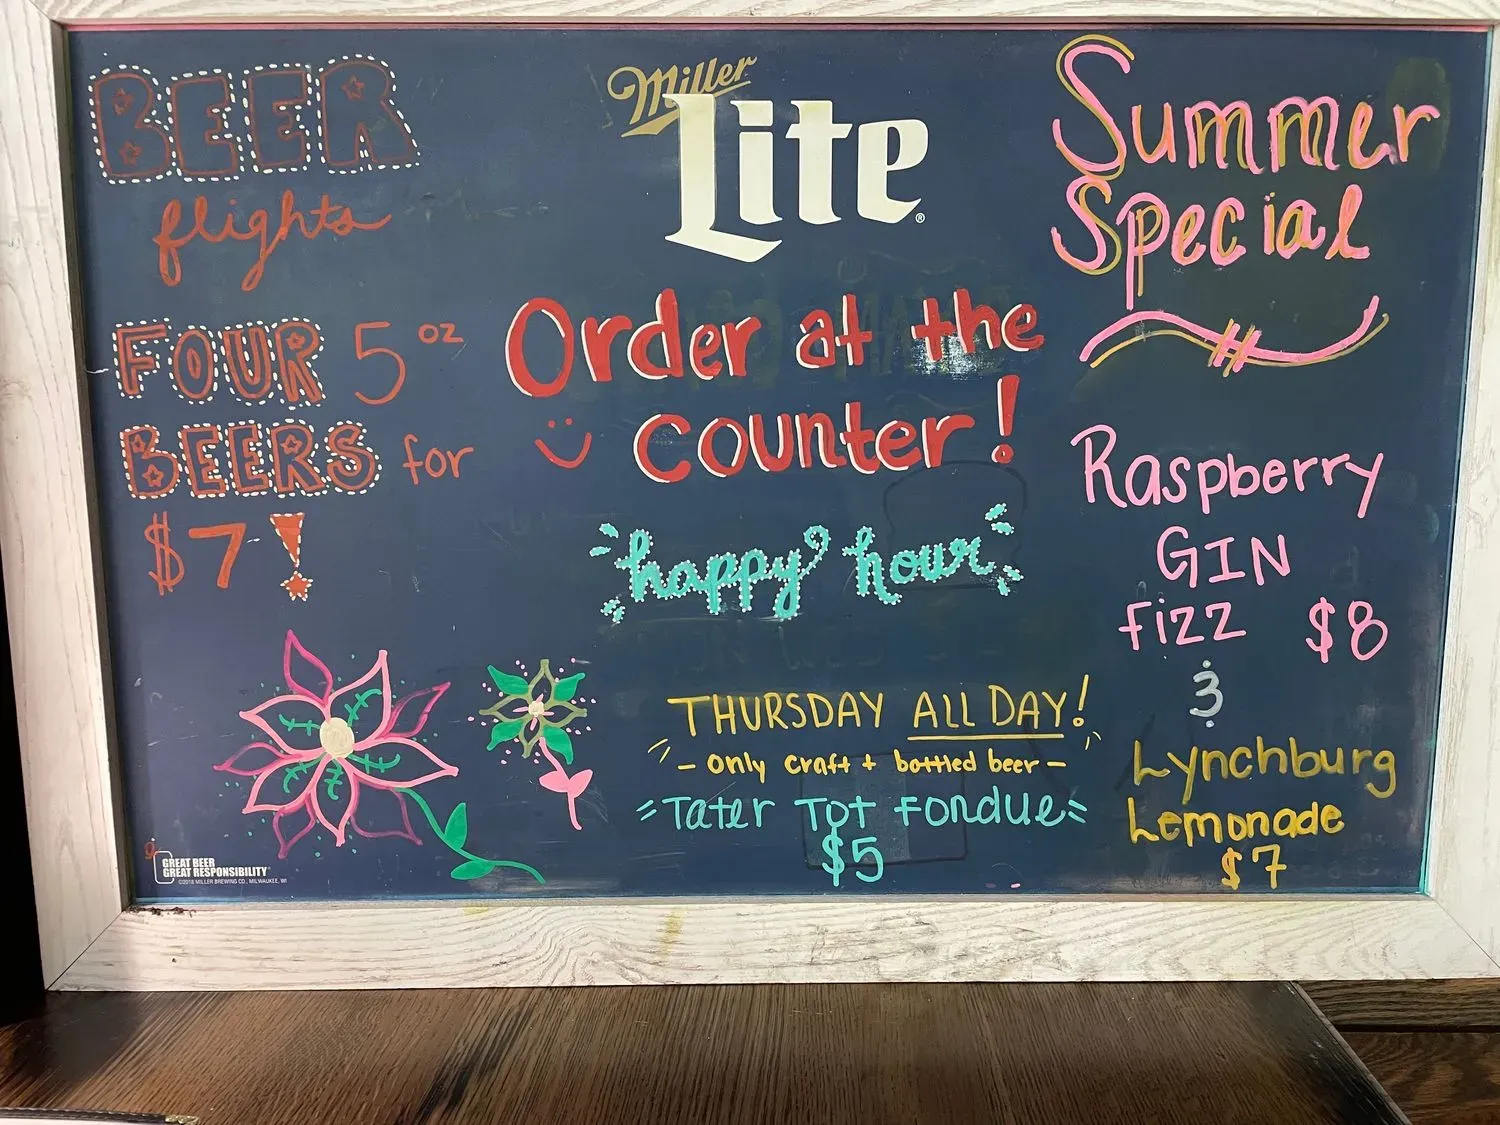 BEER
flights
FOUR 5 oz
BEERS for
$7!
GREAT BEER
GREAT RESPONSIBILITY®
©2018 MILLER BREWING CO., MILWAUKEE, WI
Miller
Lite®
Order at the
counter!
happy hour
THURSDAY ALL DAY!
- only craft + bottled beer -
Tater Tot Fondue
$5
Summer
Special
Raspberry
GIN
Fizz $8
&
Lynchburg
Lemonade
$7